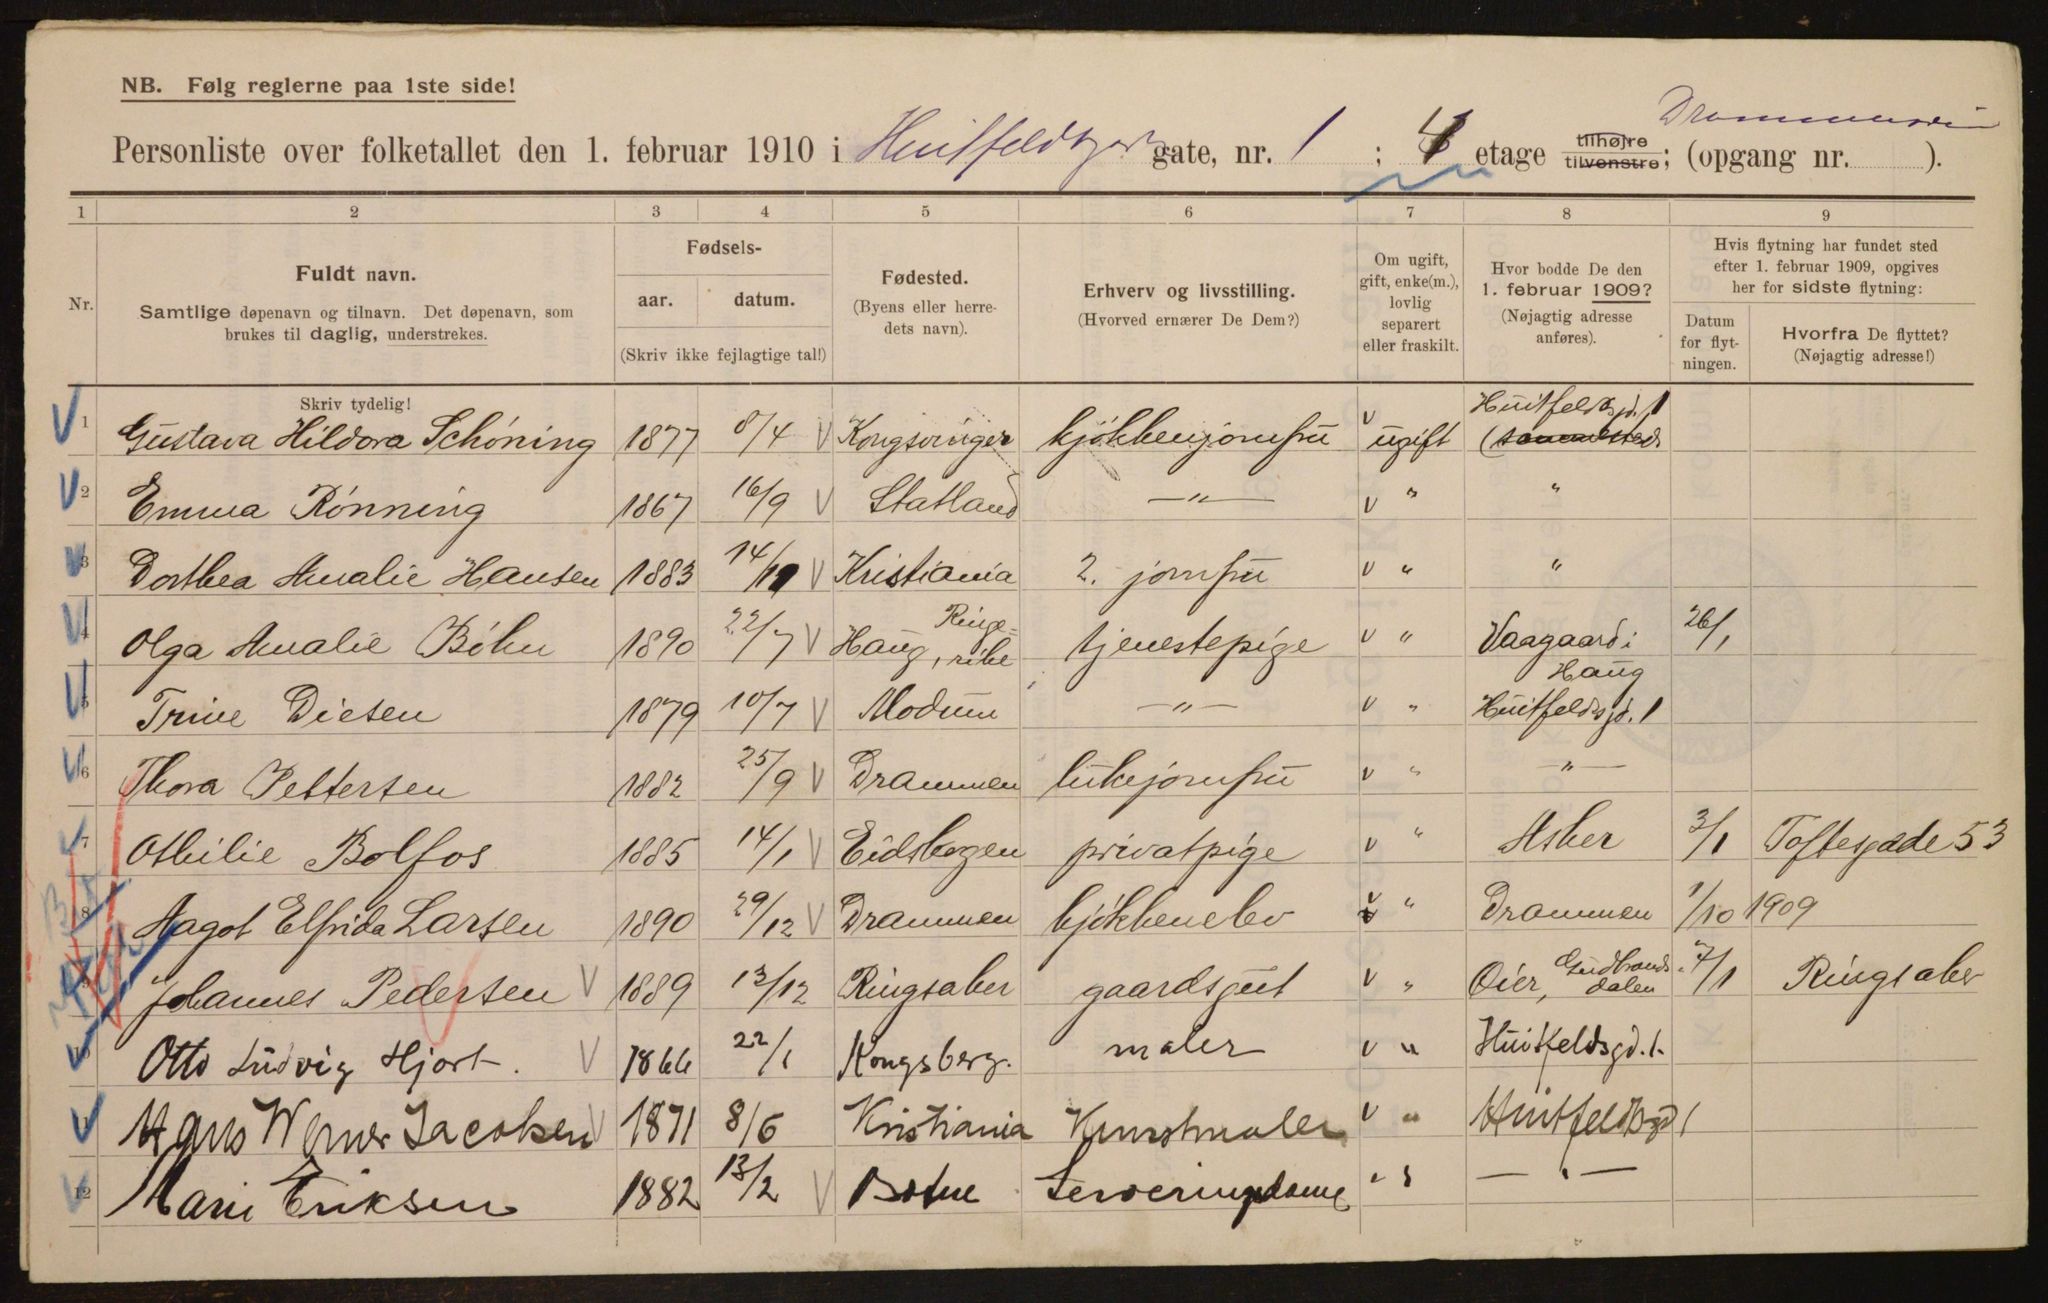 NB. Følg reglerne paa 1ste side!
Personliste over folketallet den 1. februar 1910 i Huitfeldtz gate, nr. 1 ; 4 etage tilhøjre tilvenstre; (opgang nr. ).
1 2 3 4 5 6 7 8 9
Nr.
Fuldt navn.
Samtlige døpenavn og tilnavn. Det døpenavn, som
brukes til daglig, understrekes.
Fødsels-
aar. datum.
(Skriv ikke fejlagtige tal!)
Fødested.
(Byens eller herre-
dets navn).
Erhverv og livsstilling.
(Hvorved ernærer De Dem?)
Om ugift,
gift, enke(m.),
lovlig
separert
eller fraskilt.
Hvor bodde De den
1. februar 1909?
(Nøjagtig adresse
anføres).
Hvis flytning har fundet sted
efter 1. februar 1909, opgives
her for sidste flytning:
Datum
for flyt-
ningen.
Hvorfra De flyttet?
(Nøjagtig adresse!)
Skriv tydelig!
1 Gustava Hildora Schóning 1877 8/4 Kongsvinger kjøkkenjomfru ugift Huitfeldtsgd. 1 (sammesteds
2 Emma Rónning 1867 16/9 Statland —„— „ „
3 Dorthea Amalie Hansen 1883 14/11 Kristiania 2. jomfru „ „
4 Olga Amalie Bóhn 1890 22/7 Haug, Ringe-rike tjenestepige „ Vaagaard i Haug 26/1
5 Trine Diesen 1879 10/7 Modum —„— „ Huitfeldsgd. 1
6 Thora Pettersen 1882 25/9 Drammen bukejomfru „ —„—
7 Othilie Bolfos 1885 14/1 Eidskogen privatpige „ Asker 3/1 Toftesgade 53
8 Aagot Elfrida Larsen 1890 29/12 Drammen kjókkenelev „ Drammen 1/10 1909
9 Johannes Pedersen 1889 13/12 Ringsaker gaardsgut „ Oier, Gudbrands-dalen 7/1 Ringsaker
10 Otto Ludvig Hjort. 1866 22/1 Kongsberg. maler „ Huitfeldsgd. 1.
11 Hans Werner Jacobsen 1871 8/6 Kristiania Kunstmaler „ Huitfeldtsgd 1
12 Marie Eriksen 1882 13/2 Botne Serveringsdame „ —„—